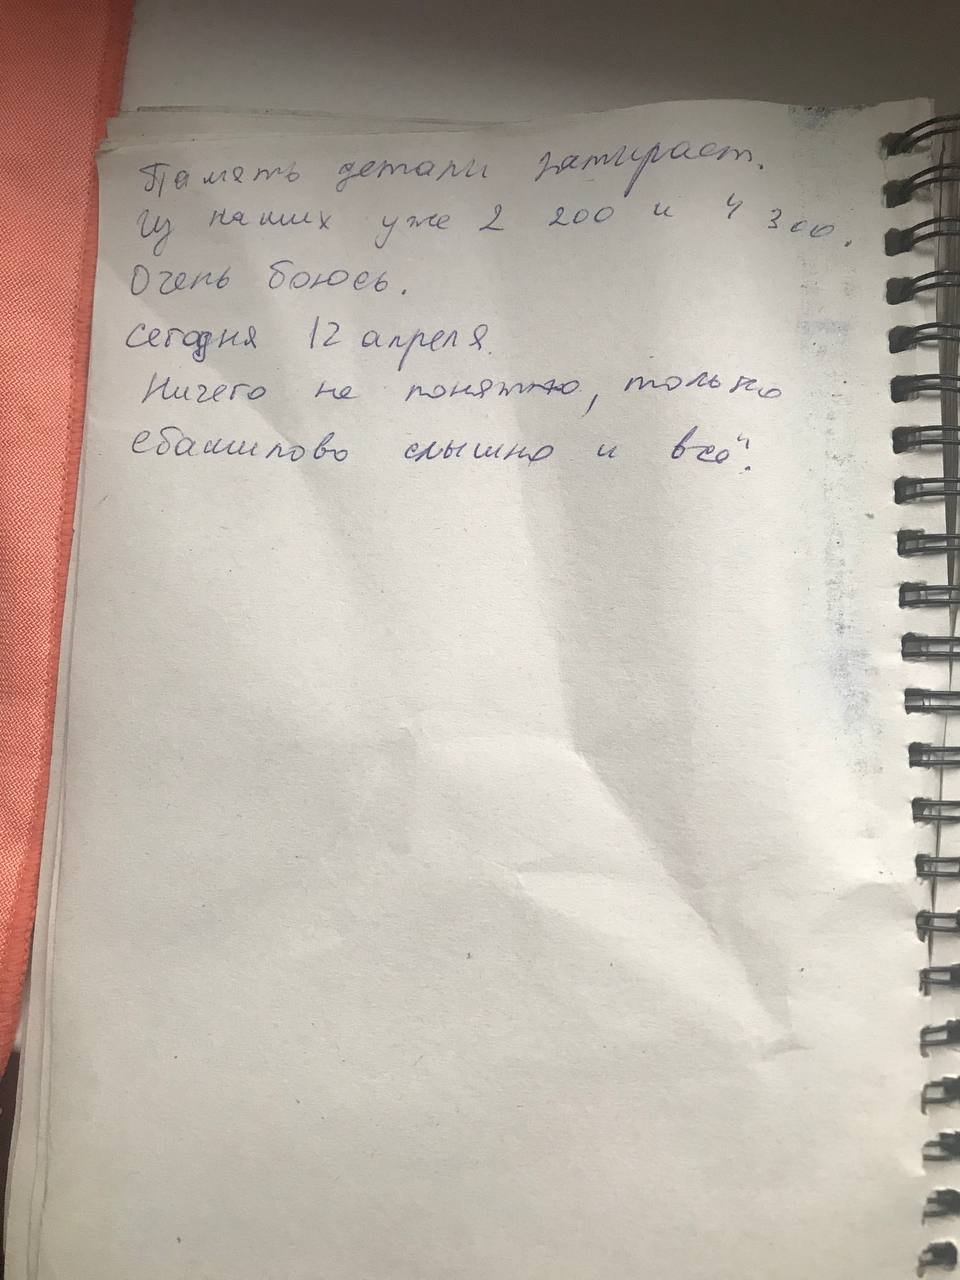 Память детали затирает.
Из наших уже 2 200 и ч 300.
Очень боюсь.
Сегодня 12 апреля.
Ничего не понятно, только
ебашилово слышно и всё".